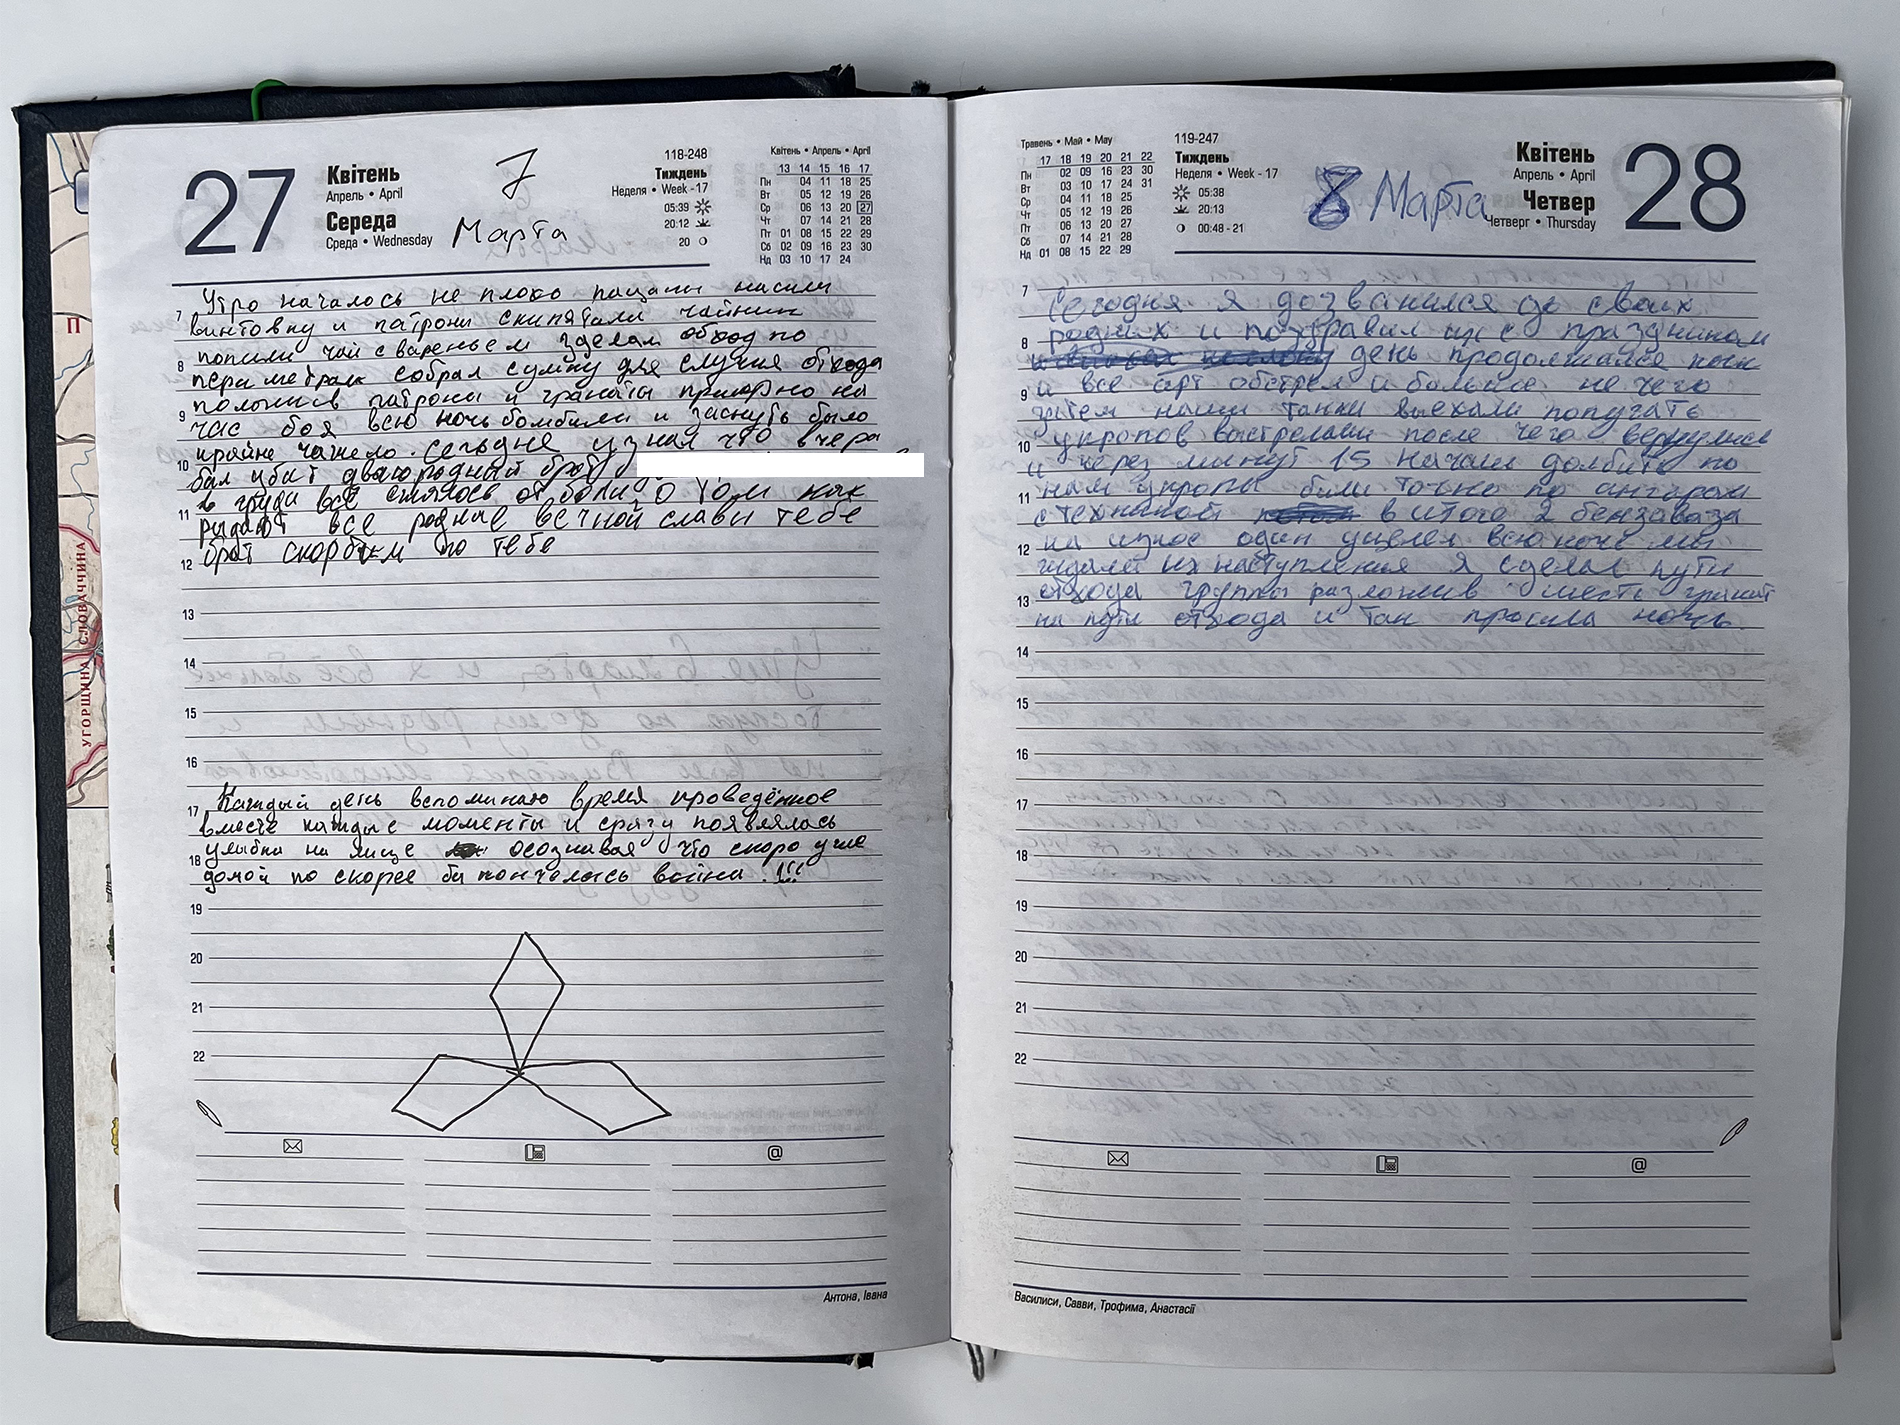 П
УГОРЩИНА СЛОВАЧЧИНА
27
Квітень
Апрель • April
Середа
Среда • Wednesday
7
Марта
118-248
Тиждень
Неделя • Week - 17
05:39
20:12
20
Квітень • Апрель • April
13 14 15 16 17
Пн 04 11 18 25
Вт 05 12 19 26
Ср 06 13 20 27
Чт 07 14 21 28
Пт 01 08 15 22 29
Сб 02 09 16 23 30
Нд 03 10 17 24
Утро началось не плохо пацаны носили
7 винтовку и патроны скипятили чайник
попили чай с вареньем зделал обход по
8 периметрам собрал сумку для случия отхода
положив патроны и гранаты примрно на
9 час боя всю ночь бомбили и заснуть было
крайне чажело. Сегодне узнал что вчера
10 бал убит двоюродный брат
в груди всё сжялось от боли, о том как
11 рыдают все родные вечной славы тебе
брат скорбим по тебе
12
13
14
15
16
Каждый день вспоминаю время проведённое
17 вместе каждые моменты и сразу появлялась
улыбка на лице осознавая что скоро уже
18 домой по скорее бы кончелась война !!!
19
20
21
22
@
Антона, Івана
Травень • Май • May
17 18 19 20 21 22
Пн 02 09 16 23 30
Вт 03 10 17 24 31
Ср 04 11 18 25
Чт 05 12 19 26
Пт 06 13 20 27
Сб 07 14 21 28
Нд 01 08 15 22 29
119-247
Тиждень
Неделя • Week - 17
05:38
20:13
00:48 - 21
8 Марта
Квітень
Апрель • April
Четвер
Четверг • Thursday
28
7
Сегодня я дозванился до своих
8 родных и поздравил их с праздником
день продолжался как
9 и все арт обстрел и больше не чего
затем наши танки выехали попугать
10 укропов выстрелами после чего вернулись
и через минут 15 начали долбить по
11 нам укропы били точно по ангарам
с техникой в итоге 2 бензаваза
12 на один уцелел всю ночь мы
ждали их наступления я сделал пути
13 отхода группы разложив шесть гранат
на пути отхода и так прошла ночь.
14
15
16
17
18
19
20
21
22
@
Василиси, Савви, Трофима, Анастасії